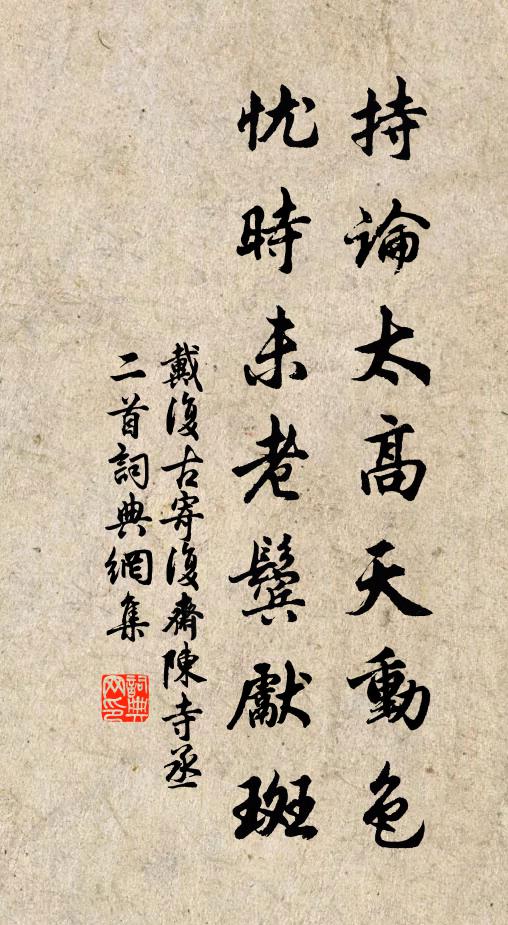 持論太高天動色
忧時未老鬓獻斑
戴復古寄復齋陳寺丞
二首詞典網集
詞典
网印